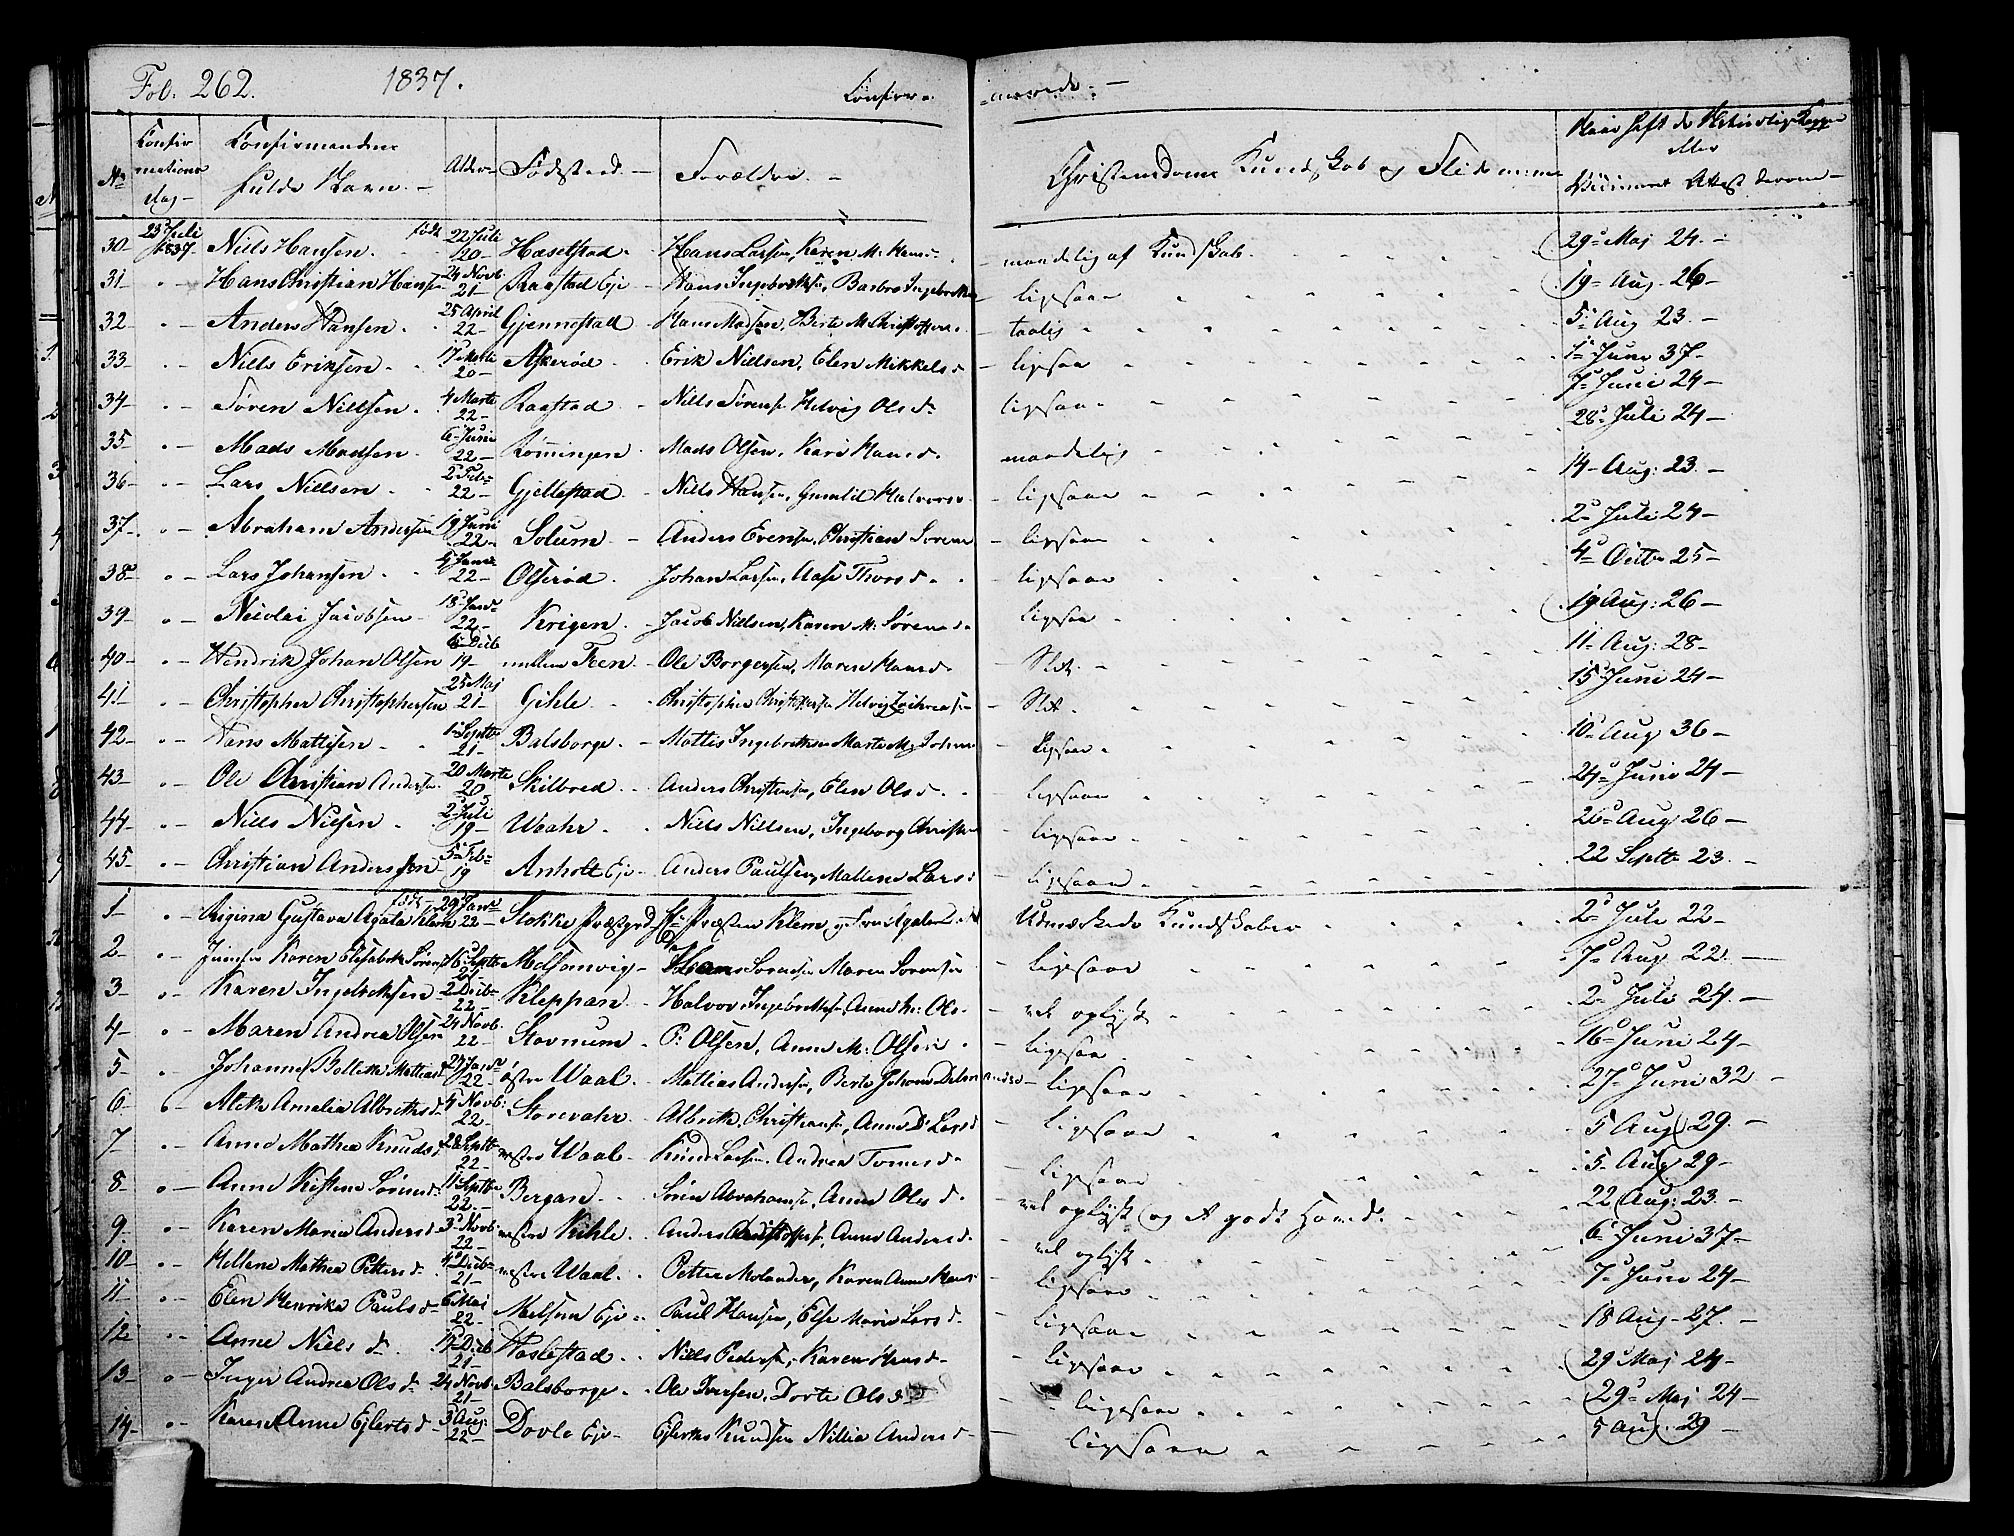 Fol. 262. 1837. Confir- merede. -
No Confirmations Dag Confirmandens fulde Navn. Alder Fødested. Forældre. Christendoms Kundskab og Flid Naar haft de Naturlige Kopper eller Vaccineret Attest derom
30 23 Juli 1837 Niels Hansen. født 22 Juli 20 Haselstad Hans Larsen, Karen M. Hansd. maadelig af Kundskab 29 Maj 24
31 Hans Christian Hansen 24 Novb. 21 Raastad Eje Hans Ingebretsen, Barbro Ingebretsd ligesaa 19 Aug. 26
32 Anders Hansen. 25 April 22 Gjennestad Hans Madsen, Berte M. Christoffersd. taalig 5 Aug 23.
33 Niels Eriksen 17 Marti 20 Askerød Erik Nielsen, Elen Mikkelsd ligesaa 1 Juni 37
34 Søren Nielsen. 4 Marti 22 Raastad Niels Sørensen Helvig Olsd. ligesaa 7 Juni 24
35 Mads Madsen. 6 Juni 22 Rømingen Mads Olsen, Kari Hansd. maadelig 28 Juli 24
36 Lars Nielsen 2 Feb. 22 Gjellestad Niels Hansen, Gunild Halvorsd ligesaa 14 Aug: 23.
37 Abraham Andersen 19 Juni 22 Solum Anders Evensen, Christian Sørensd ligesaa 2 Juli 24
38 Lars Johansen 4 Janr 22 Olserød. Johan Larsen, Aase Thorsd. ligesaa 4 Octbr 25
39 Nicolai Jacobsen 18 Janr 22 Krigen Jacob Nielsen, Karen M. Sørensd. ligesaa 19 Aug: 26
40 Hendrik Johan Olsen 6 Decb 19 mellem Feen Ole Borgersen, Maren Hansd. Slet. 11 Aug: 28
41 Christopher Christophersen 25 Maj 21 Gihle Christopher Christoffersen Helvig Slet. 15 Juni 24
42 Hans Mattisen 1 Septb 21 Balsborge Mattis Ingebretsen Marte M. Johansd Ligesaa 10 Aug 36
43 Ole Christian Andersen 20 Marti 20 Skilbred Anders Christensen, Elen Olsd. ligesaa 24 Juni 24
44 Niels Nielsen 2 Juli 19 Waahr Niels Nielsen, Ingeborg Christensd ligesaa 26 Aug 26
45 Christian Anderssen 5 Feb 19 Anholt Eje Anders Paulsen, Mallene Larsd ligesaa 22 Septb 23.
1 Regina Gustava Agata Klem født 29 Janr 22 Stokke Præstegrd Hr. Præsten Klem, og Fru Agate Udmærkede Kundskaber 2 Juli 22
2 Jensine Karen Elisabeth Sørensd 16 Septb 21 Melsomvig Hans Sørensen Maren Sørensen ligesaa 7 Aug 22.
3 Karen Ingebretsen 2 Decb 22 Kleppan Halvor Ingebrettsen, Anne M. Olsd. vel oplyst 2 Juli 24.
4 Maren Andrea Olsen 24 Novb. 22 Stovnum P: Olsen, Anne M: Olsen ligesaa 16 Juni 24
5 Johanne Bolette Mattiasd 23 Janr 22 østre Waal Mattias Andersen, Berte Johanne ligesaa 27 Juni 32
6 Alette Amalia Albretsd 4 Novb: 22 Storevahr Albrikt Christiansen, Anne D. Larsd ligesaa 5 Aug 29.
7 Anne Mathea Knudsd 28 Septb 22 vestre Waal Knud Larsen, Andrea Tomesd. ligesaa 5 Aug 29
8 Anne Kistine Sørensd 11 Septb 22. Bergan Søren Abrahamsen, Anne Olsd. vel oplyst og et godt Hoved. 22 Aug: 23.
9 Karen Maria Andersd 3 Novb. 22 vestre Kihle. Anders Christoffersen, Anne Andersd. vel oplyst 6 Juni 37
10 Hellene Mathea Pettersd 4 Decb 21 vestre Waal. Petter Molander, Karen Anne Hansd ligesaa 7 Juni 24
11 Elen Henrika Paulsd 6 Maj 22 Melsom Eje Paul Hansen, Else Marie Larsd. ligesaa 18 Aug. 27.
12 Anne Nielsd. 14 Decb 21 Haslestad Niels Pedersen, Karen Hansd. ligesaa 29 Maj 24
13 Inger Andrea Olsd. 24 Novb. 21 Balsborge Ole Iversen, Dorte Olsd ligesaa 29 Maj 24
14 Karen Anne Ejlertsd 3 Aug: 22 Dovle Eje Ejlertes Knudsen Nillia Andersd ligesaa 5 Aug. 29